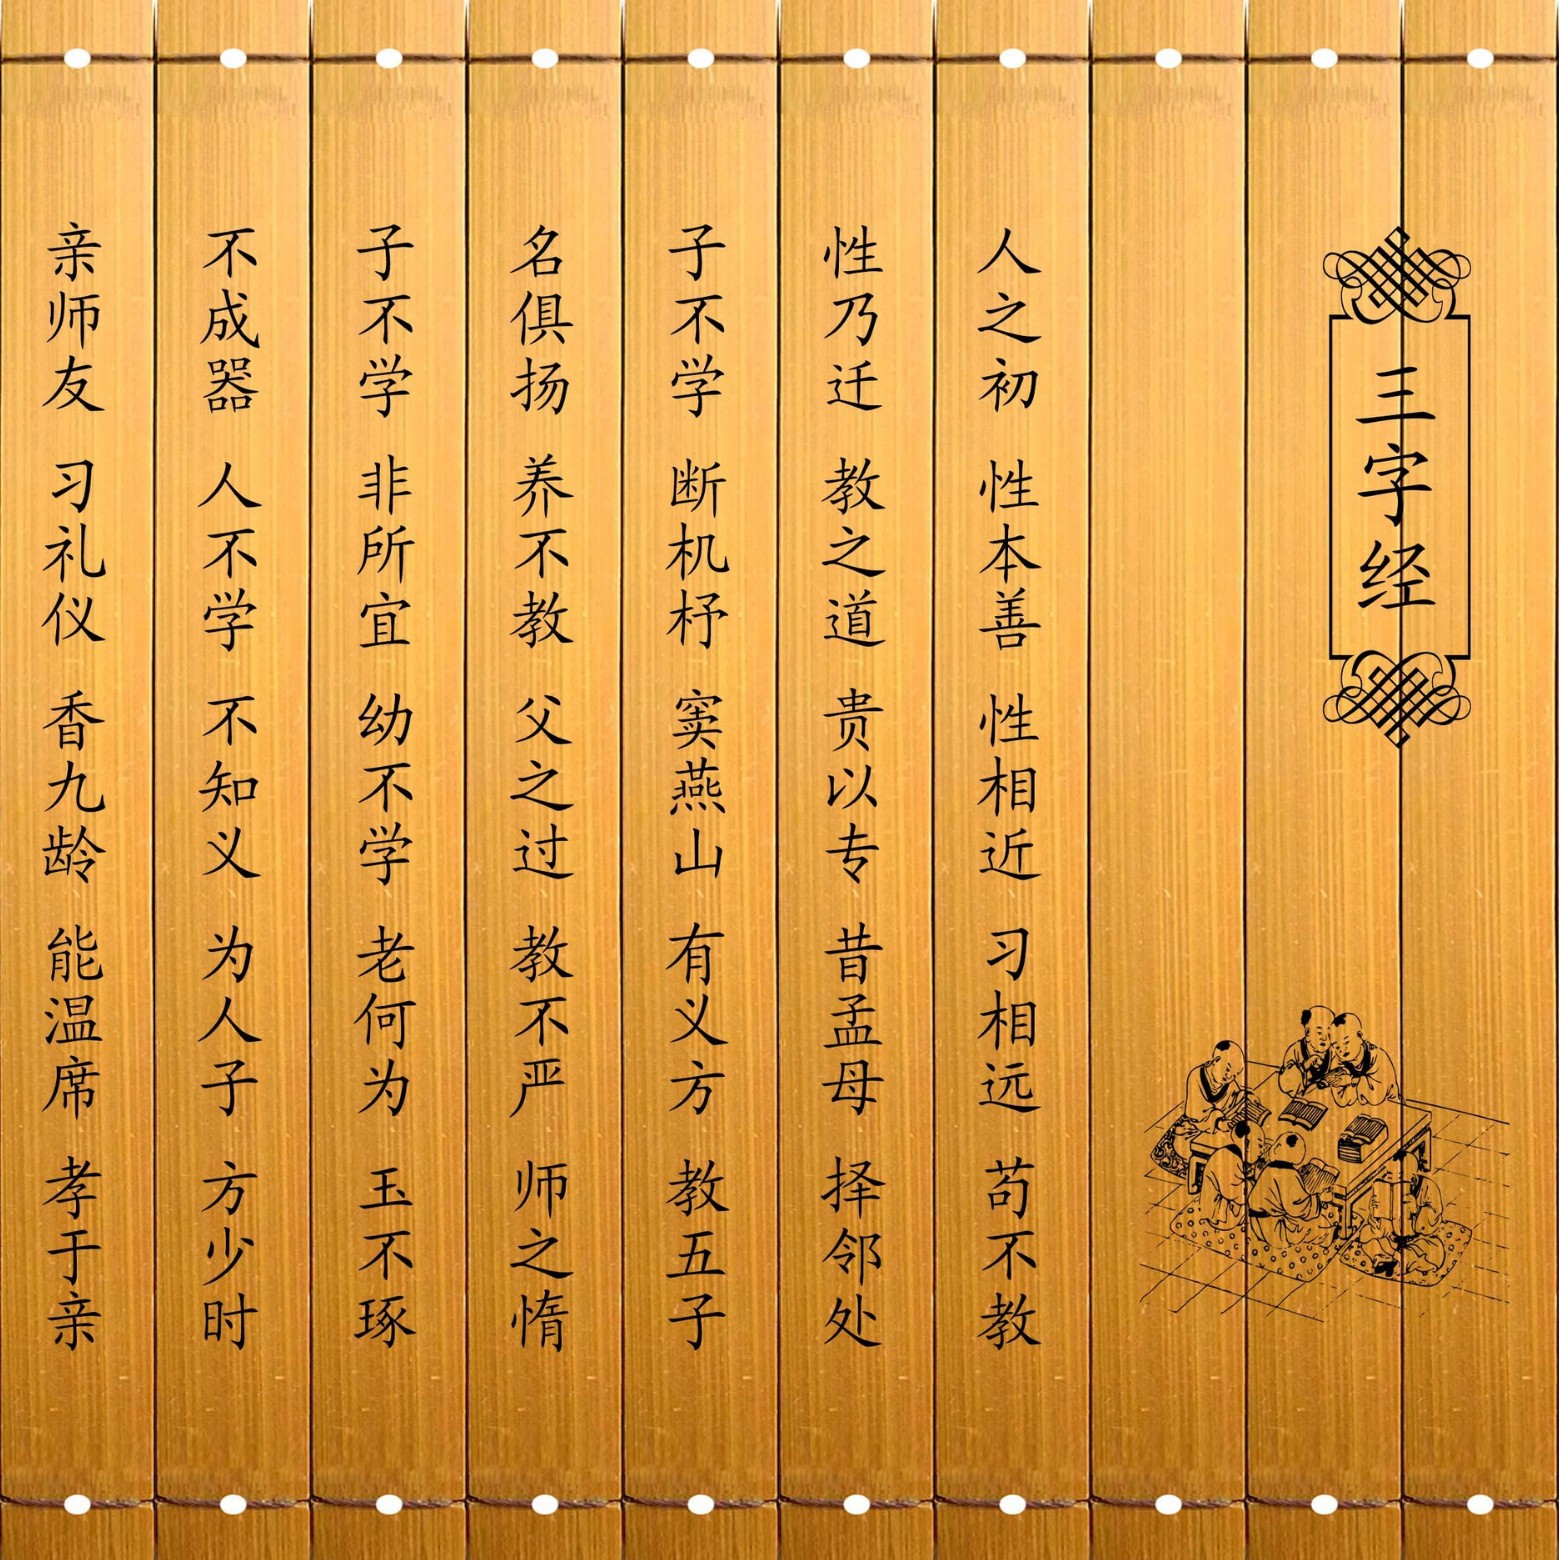 三字经
人之初 性本善 性相近 习相远 苟不教
性乃迁 教之道 贵以专 昔孟母 择邻处
子不学 断机杼 窦燕山 有义方 教五子
名俱扬 养不教 父之过 教不严 师之惰
子不学 非所宜 幼不学 老何为 玉不琢
不成器 人不学 不知义 为人子 方少时
亲师友 习礼仪 香九龄 能温席 孝于亲